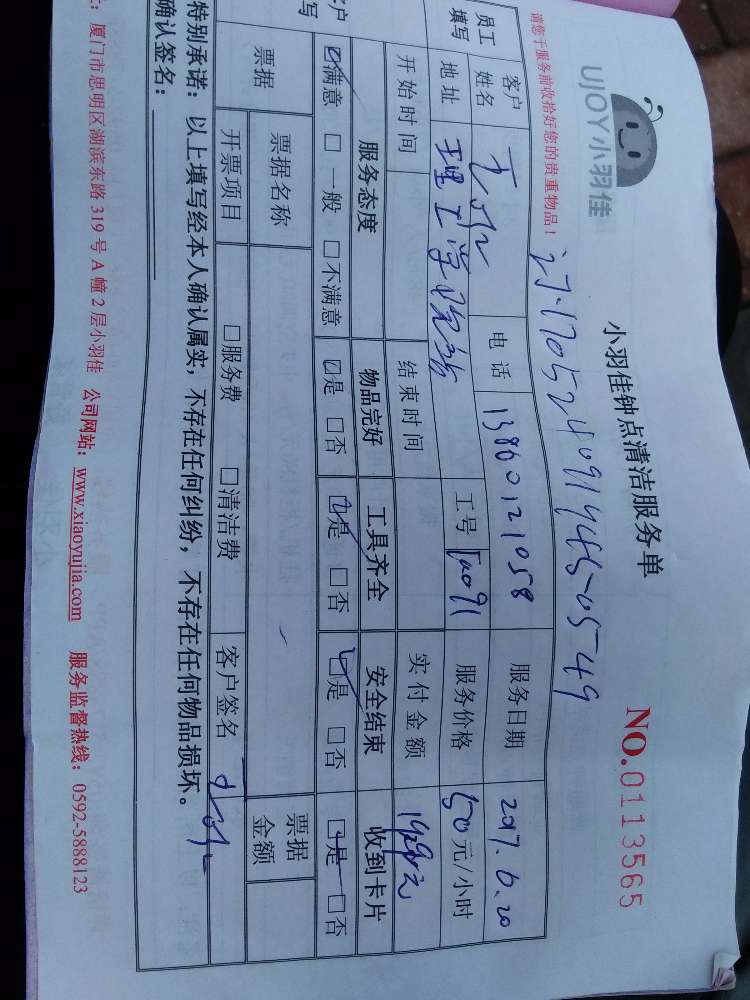 UJOY小羽佳
小羽佳钟点清洁服务单
NO.0113565
请您于服务前收拾好您的贵重物品！
员工
填写
客户
姓名
电话 13860121058
服务日期 2017.6.20
地址 理工学院
工号
服务价格 50元/小时
开始时间
结束时间
实付金额
客户
写
服务态度 物品完好 工具齐全 安全结束 收到卡片
☑满意 □一般 □不满意 ☑是 □否 ☑是 □否 ☑是 □否 □是 □否
票据 票据名称 票据
金额
开票项目 □服务费 □清洁费 客户签名
特别承诺：以上填写经本人确认属实，不存在任何纠纷，不存在任何物品损坏。
确认签名：
厦门市思明区湖滨东路319号A幢2层小羽佳 公司网站：www.xiaoyujia.com 服务监督热线：0592-5888123